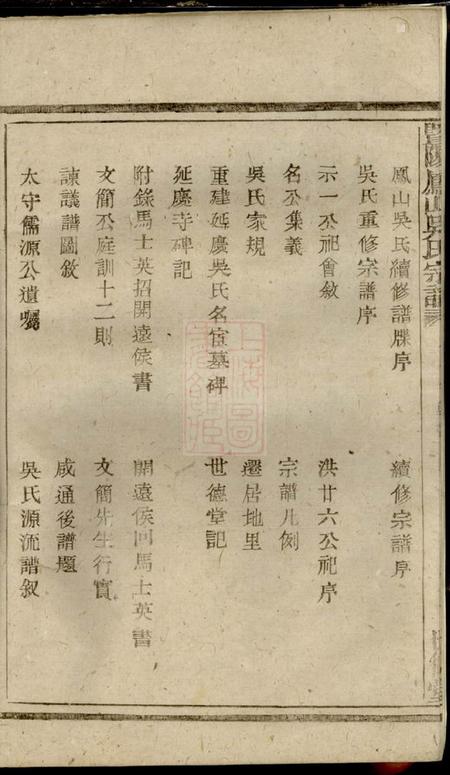 鳳山吳氏續修譜牒序
續修宗譜序
吳氏重修宗譜序
示一公祀會敘
洪廿六公祀序
名公集義
宗譜凡例
吳氏家規
遷居地里
重建延慶吳氏名宦墓碑
世德堂記
延慶寺碑記
附錄馬士英招開遠侯書
開遠侯回馬士英書
文簡公庭訓十二則
文簡先生行實
諫議譜圖敘
咸通後譜題
太守儒源公遺囑
吳氏源流譜叙
暨陽鳳山吳氏宗譜
上海圖書館藏